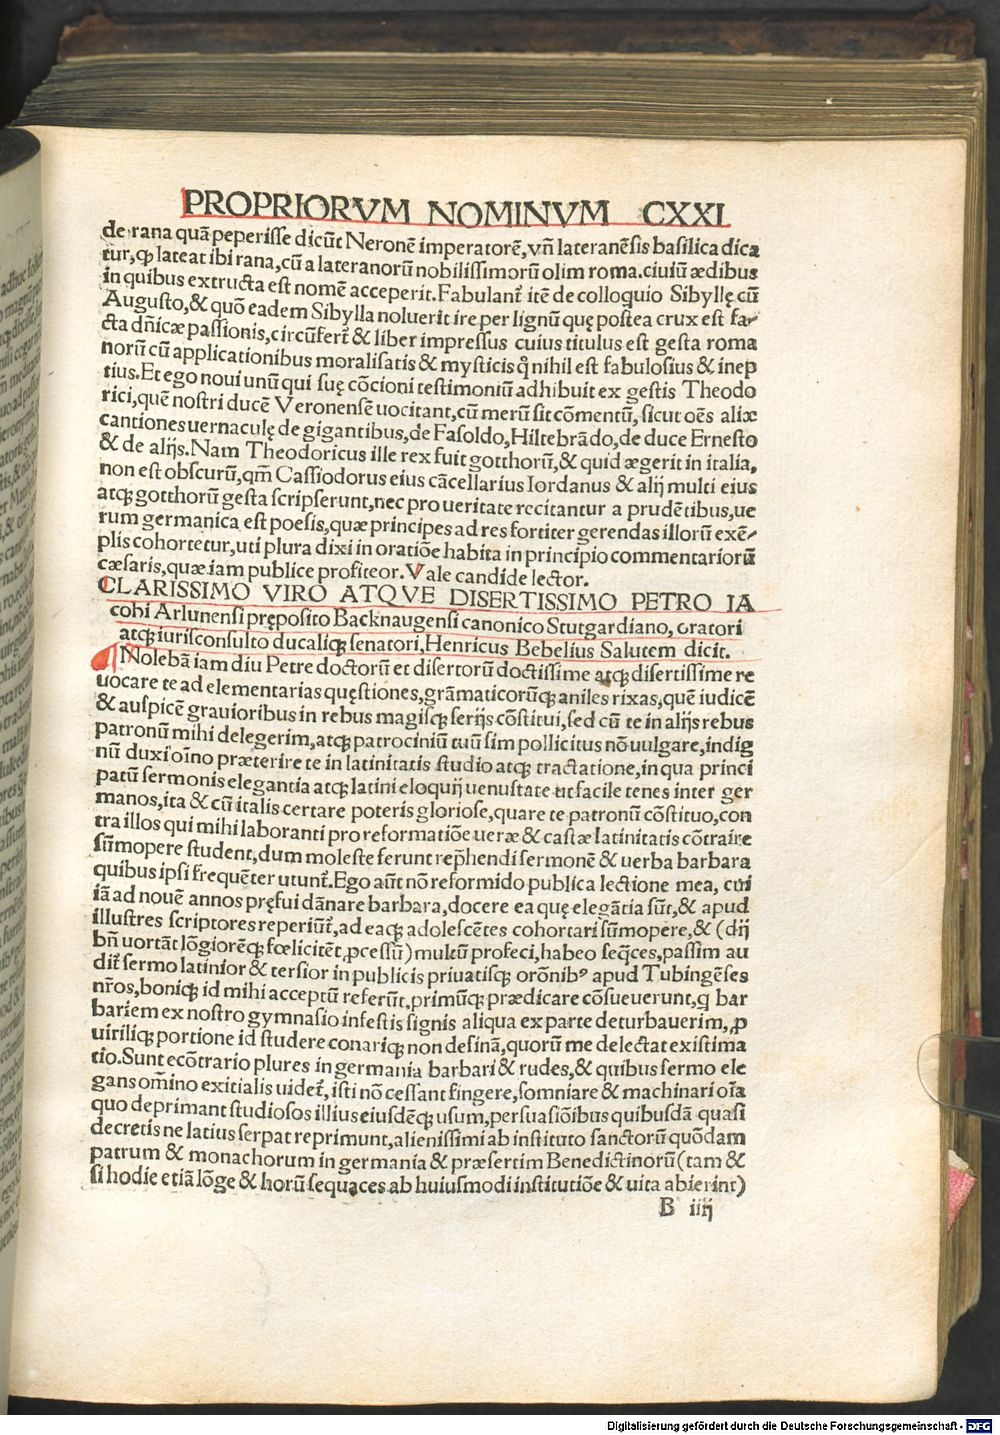 PROPRIORVM NOMINVM CXXI
de rana quā peperisse dicūt Neronē imperatorē, vn̄ lateranēsis basilica dica
tur, ꝙ lateat ibi rana, cū a lateranorū nobilissimorū olim roma. ciuiū ædibus
in quibus extructa est nomē acceperit. Fabulant̄ itē de colloquio Sibyllę cū
Augusto, & quō eadem Sibylla noluerit ire per lignū quę postea crux est fa⸗
cta dn̄icæ passionis, circūfert̄ & liber impressus cuius titulus est gesta roma
norū cū applicationibus moralisatis & mysticis q̄ nihil est fabulosius & inep
tius. Et ego noui unū qui suę cōcioni testimoniū adhibuit ex gestis Theodo
rici, quē nostri ducē Veronensē uocitant, cū merū sit cōmentū, sicut oēs aliæ
cantiones uernaculę de gigantibus, de Fasoldo, Hiltebrādo, de duce Ernesto
& de alijs. Nam Theodoricus ille rex fuit gotthorū, & quid ægerit in italia,
non est obscurū, qm̄ Cassiodorus eius cācellarius Iordanus & alij multi eius
atqꝫ gotthorū gesta scripserunt, nec pro ueritate recitantur a prudētibus, ue
rum germanica est poesis, quæ principes ad res fortiter gerendas illorū exē⸗
plis cohortetur, uti plura dixi in oratiōe habita in principio commentariorū
cæsaris, quæ iam publice profiteor. Vale candide lector.
CLARISSIMO VIRO ATQVE DISERTISSIMO PETRO IA
cobi Arlunensi pręposito Backnaugensi canonico Stutgardiano, oratori
atqꝫ iurisconsulto ducaliqꝫ senatori, Henricus Bebelius Salutem dicit.
Nolebā iam diu Petre doctorū et disertorū doctissime atqꝫ disertissime re
uocare te ad elementarias quęstiones, grāmaticorūqꝫ aniles rixas, quē iudicē
& auspicē grauioribus in rebus magisqꝫ serijs cōstitui, sed cū te in alijs rebus
patronū mihi delegerim, atqꝫ patrociniū tuū sim pollicitus nō uulgare, indig
nū duxi oīno præterire te in latinitatis studio atqꝫ tractatione, in qua princi
patū sermonis elegantia atqꝫ latini eloquij uenustate ut facile tenes inter ger
manos, ita & cū italis certare poteris gloriose, quare te patronū cōstituo, con
tra illos qui mihi laboranti pro reformatiōe ueræ & castæ latinitatis cōtraire
sūmopere student, dum moleste ferunt rep̄hendi sermonē & uerba barbara
quibus ipsi frequēter utunt̄. Ego aūt nō reformido publica lectione mea, cui
iā ad nouē annos pręfui dānare barbara, docere ea quę elegātia sūt, & apud
illustres scriptores reperiūt̄, ad eaqꝫ adolescētes cohortari sūmopere, & (dij
bn̄ uortāt lōgiorēqꝫ fœlicitēt, ꝓcessū) multū profeci, habeo seq̄ces, passim au
dit̄ sermo latinior & tersior in publicis priuatisqꝫ orōnibꝰ apud Tubingēses
nr̄os, boniqꝫ id mihi acceptū referūt, primūqꝫ prædicare cōsueuerunt, q̄ bar
bariem ex nostro gymnasio infestis signis aliqua ex parte deturbauerim, ꝓ
uiriliqꝫ portione id studere conariqꝫ non desinā, quorū me delectat existima
tio. Sunt ecōtrario plures in germania barbari & rudes, & quibus sermo ele
gans om̄ino exitialis uidet̄, isti nō cessant fingere, somniare & machinari oīa
quo deprimant studiosos illius eiusdēqꝫ usum, persuasiōibus quibusdā quasi
decretis ne latius serpat reprimunt, alienissimi ab instituto sanctorū quōdam
patrum & monachorum in germania & præsertim Benedictinorū (tam &
si hodie etiā lōge & horū sequaces ab huiusmodi institutiōe & uita abierint)
B iiij
Digitalisierung gefördert durch die Deutsche Forschungsgemeinschaft - DFG